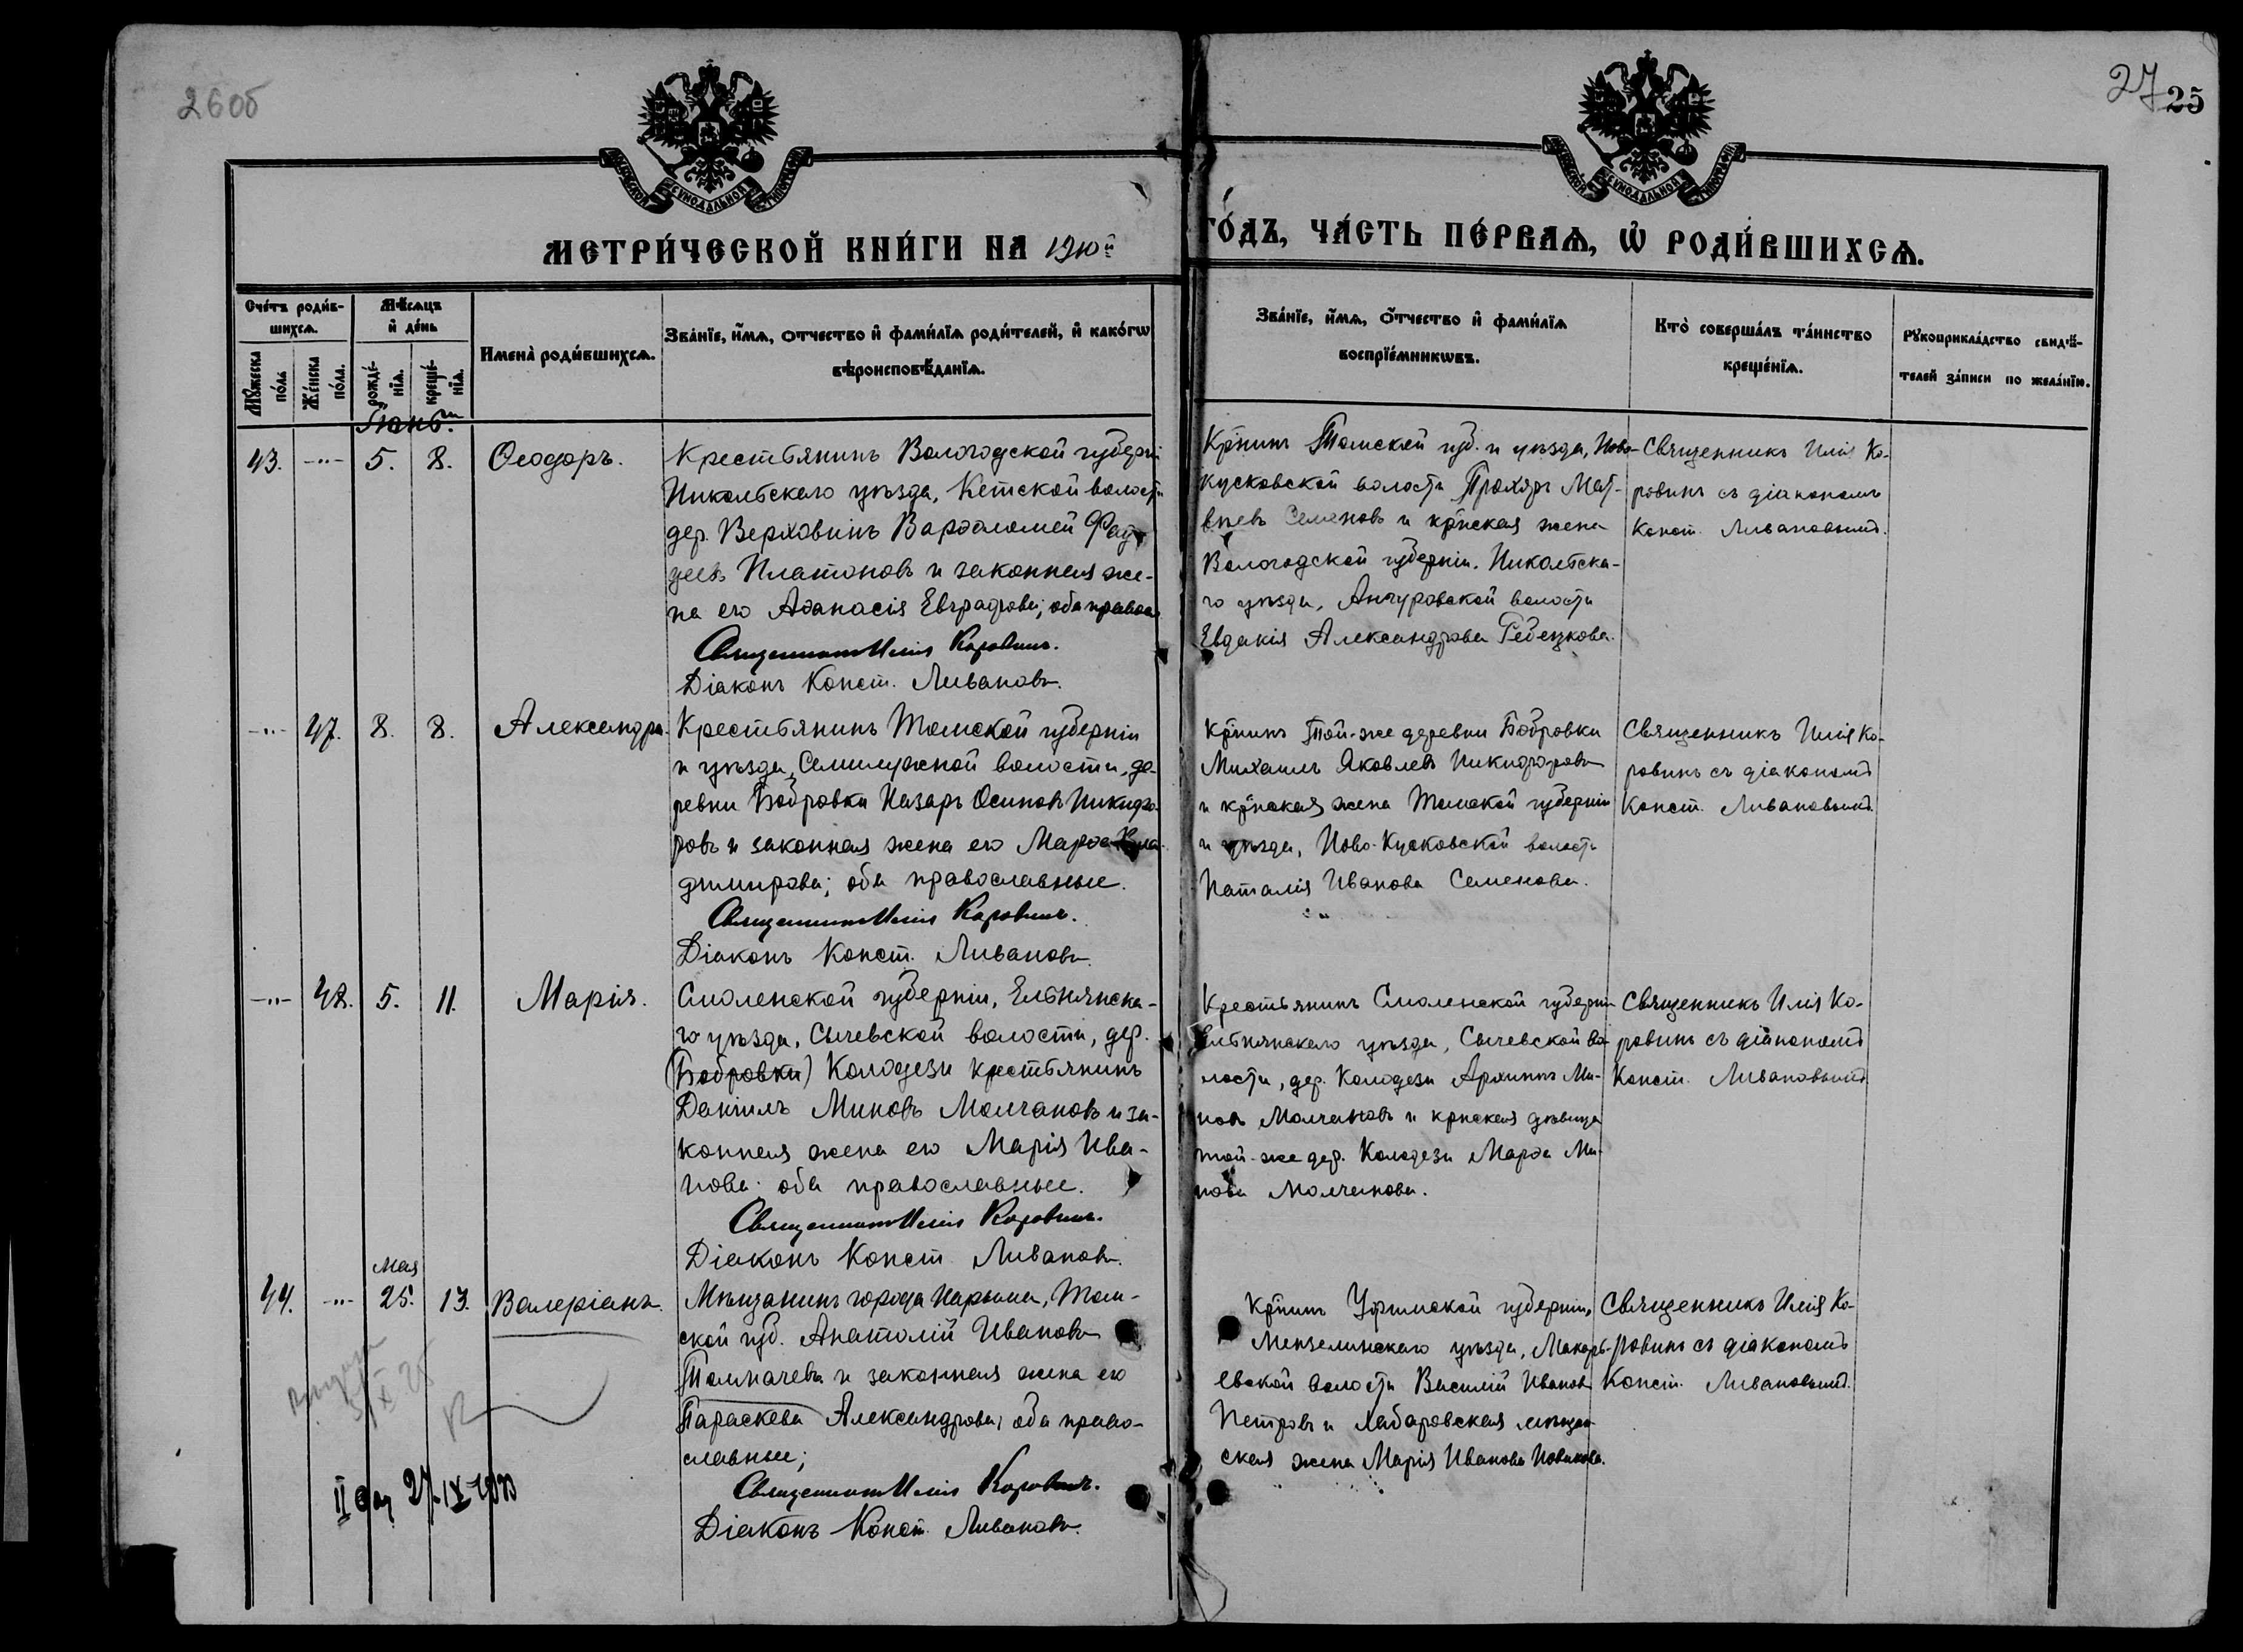 260б
27
25
МЕТРИЧЕСКОЙ КНИГИ НА 1910й
ГОДЪ, ЧАСТЬ ПЕРВАЯ, Ѡ РОДИВШИХСЯ.
Счетъ родив-
шихся.
Мѣсяцъ
и день
Мужеска
полъ
Женска
пола.
рожде-
нія.
креще-
нія.
Имена родившихся.
Званіе, имя, отчество и фамилія родителей, и какогѡ
вѣроисповѣданія.
Званіе, имя, отчество и фамилія
воспріемникѡвъ.
Кто совершалъ таинство
крещенія.
Рукоприкладство свидѣ-
телей записи по желанію.
43. -"- 5. 8. Ѳеодоръ.
Крестьянинъ Вологодской губерніи
Никольскаго уѣзда, Кемской волости
дер. Верховинъ Варѳоломей Фад-
деевъ Платоновъ и законная же-
на его Аѳанасія Евграфова; оба правосл.
Священникъ Илія Коровинъ.
Діаконъ Конст. Ливановъ.
Кр-нинъ Томской губ. и уѣзда, Ново-
кусковской волости Прохоръ Мат-
вѣевъ Семеновъ и кр-нская жена
Вологодской губерніи. Никольска-
го уѣзда, Ангуровской волости
Евдокія Александрова
Священникъ Илія Ко-
ровинъ съ діакономъ
Конст. Ливановымъ.
-"- 47. 8. 8. Александра.
Крестьянинъ Томской губерніи
и уѣзда, Семилужной волости, де-
ревни Бобровки Назаръ Осиповъ Никифо-
ровъ и законная жена его Марѳа Вла-
димирова; оба православные.
Священникъ Илія Коровинъ.
Діаконъ Конст. Ливановъ.
Кр-нинъ той-же деревни Бобровки
Михаилъ Яковлевъ Никифоровъ
и кр-нская жена Томской губерніи
и уѣзда, Ново-Кусковской волости
Наталія Иванова Семенова.
Священникъ Илія Ко-
ровинъ съ діакономъ
Конст. Ливановымъ.
-"- 48. 5. 11. Марія.
Смоленской губерніи, Ельнинска-
го уѣзда, Сычевской волости, дер.
(Бобровки) Колодези крестьянинъ
Даніилъ Миновъ Молчановъ и за-
конная жена его Марія Ива-
нова; оба православные.
Священникъ Илія Коровинъ.
Діаконъ Конст. Ливановъ.
Крестьянинъ Смоленской губерніи
Ельнинскаго уѣзда, Сычевской во-
лости, дер. Колодези Архипъ Ми-
новъ Молчановъ и кр-нская дѣвица
той-же дер. Колодези Марѳа Ми-
нова Молчанова.
Священникъ Илія Ко-
ровинъ съ діакономъ
Конст. Ливановымъ.
Мая
44. -"- 25. 13. Валеріанъ.
Мѣщанинъ города Нарыма, Том-
ской губ. Анатолій Ивановъ
Толмачевъ и законная жена его
Параскева Александрова; оба право-
славные;
Священникъ Илія Коровинъ.
Діаконъ Конст. Ливановъ.
Кр-нинъ Уфимской губерніи,
Мензелинскаго уѣзда, Макарь-
евской волости Василій Ивановъ
Петровъ и Хабаровская мѣщан-
ская жена Марія Иванова Новикова.
Священникъ Илія Ко-
ровинъ съ діакономъ
Конст. Ливановымъ.